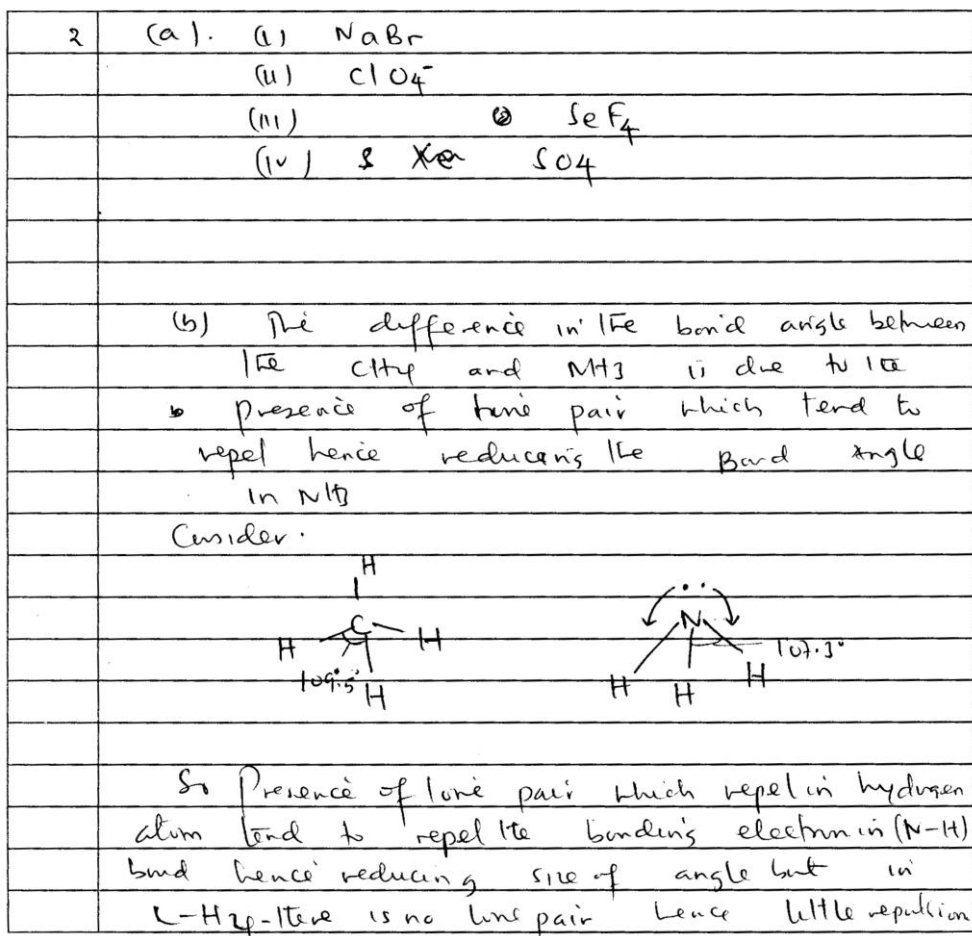 2 (a). (i) NaBr
(ii) ClO4-
(iii) SeF4
(iv) SO4
(b) The difference in the bond angle between
the CH4 and NH3 is due to the
presence of lone pair which tend to
repel hence reducing the Bond Angle
in NH3
Consider.
H
C
H H
109.5°
H
..
N
107.3°
H H H
So Presence of lone pair which repel in hydrogen
atom tend to repel the bonding electron in (N-H)
bond hence reducing size of angle but in
C-H4 - there is no lone pair hence little repulsion